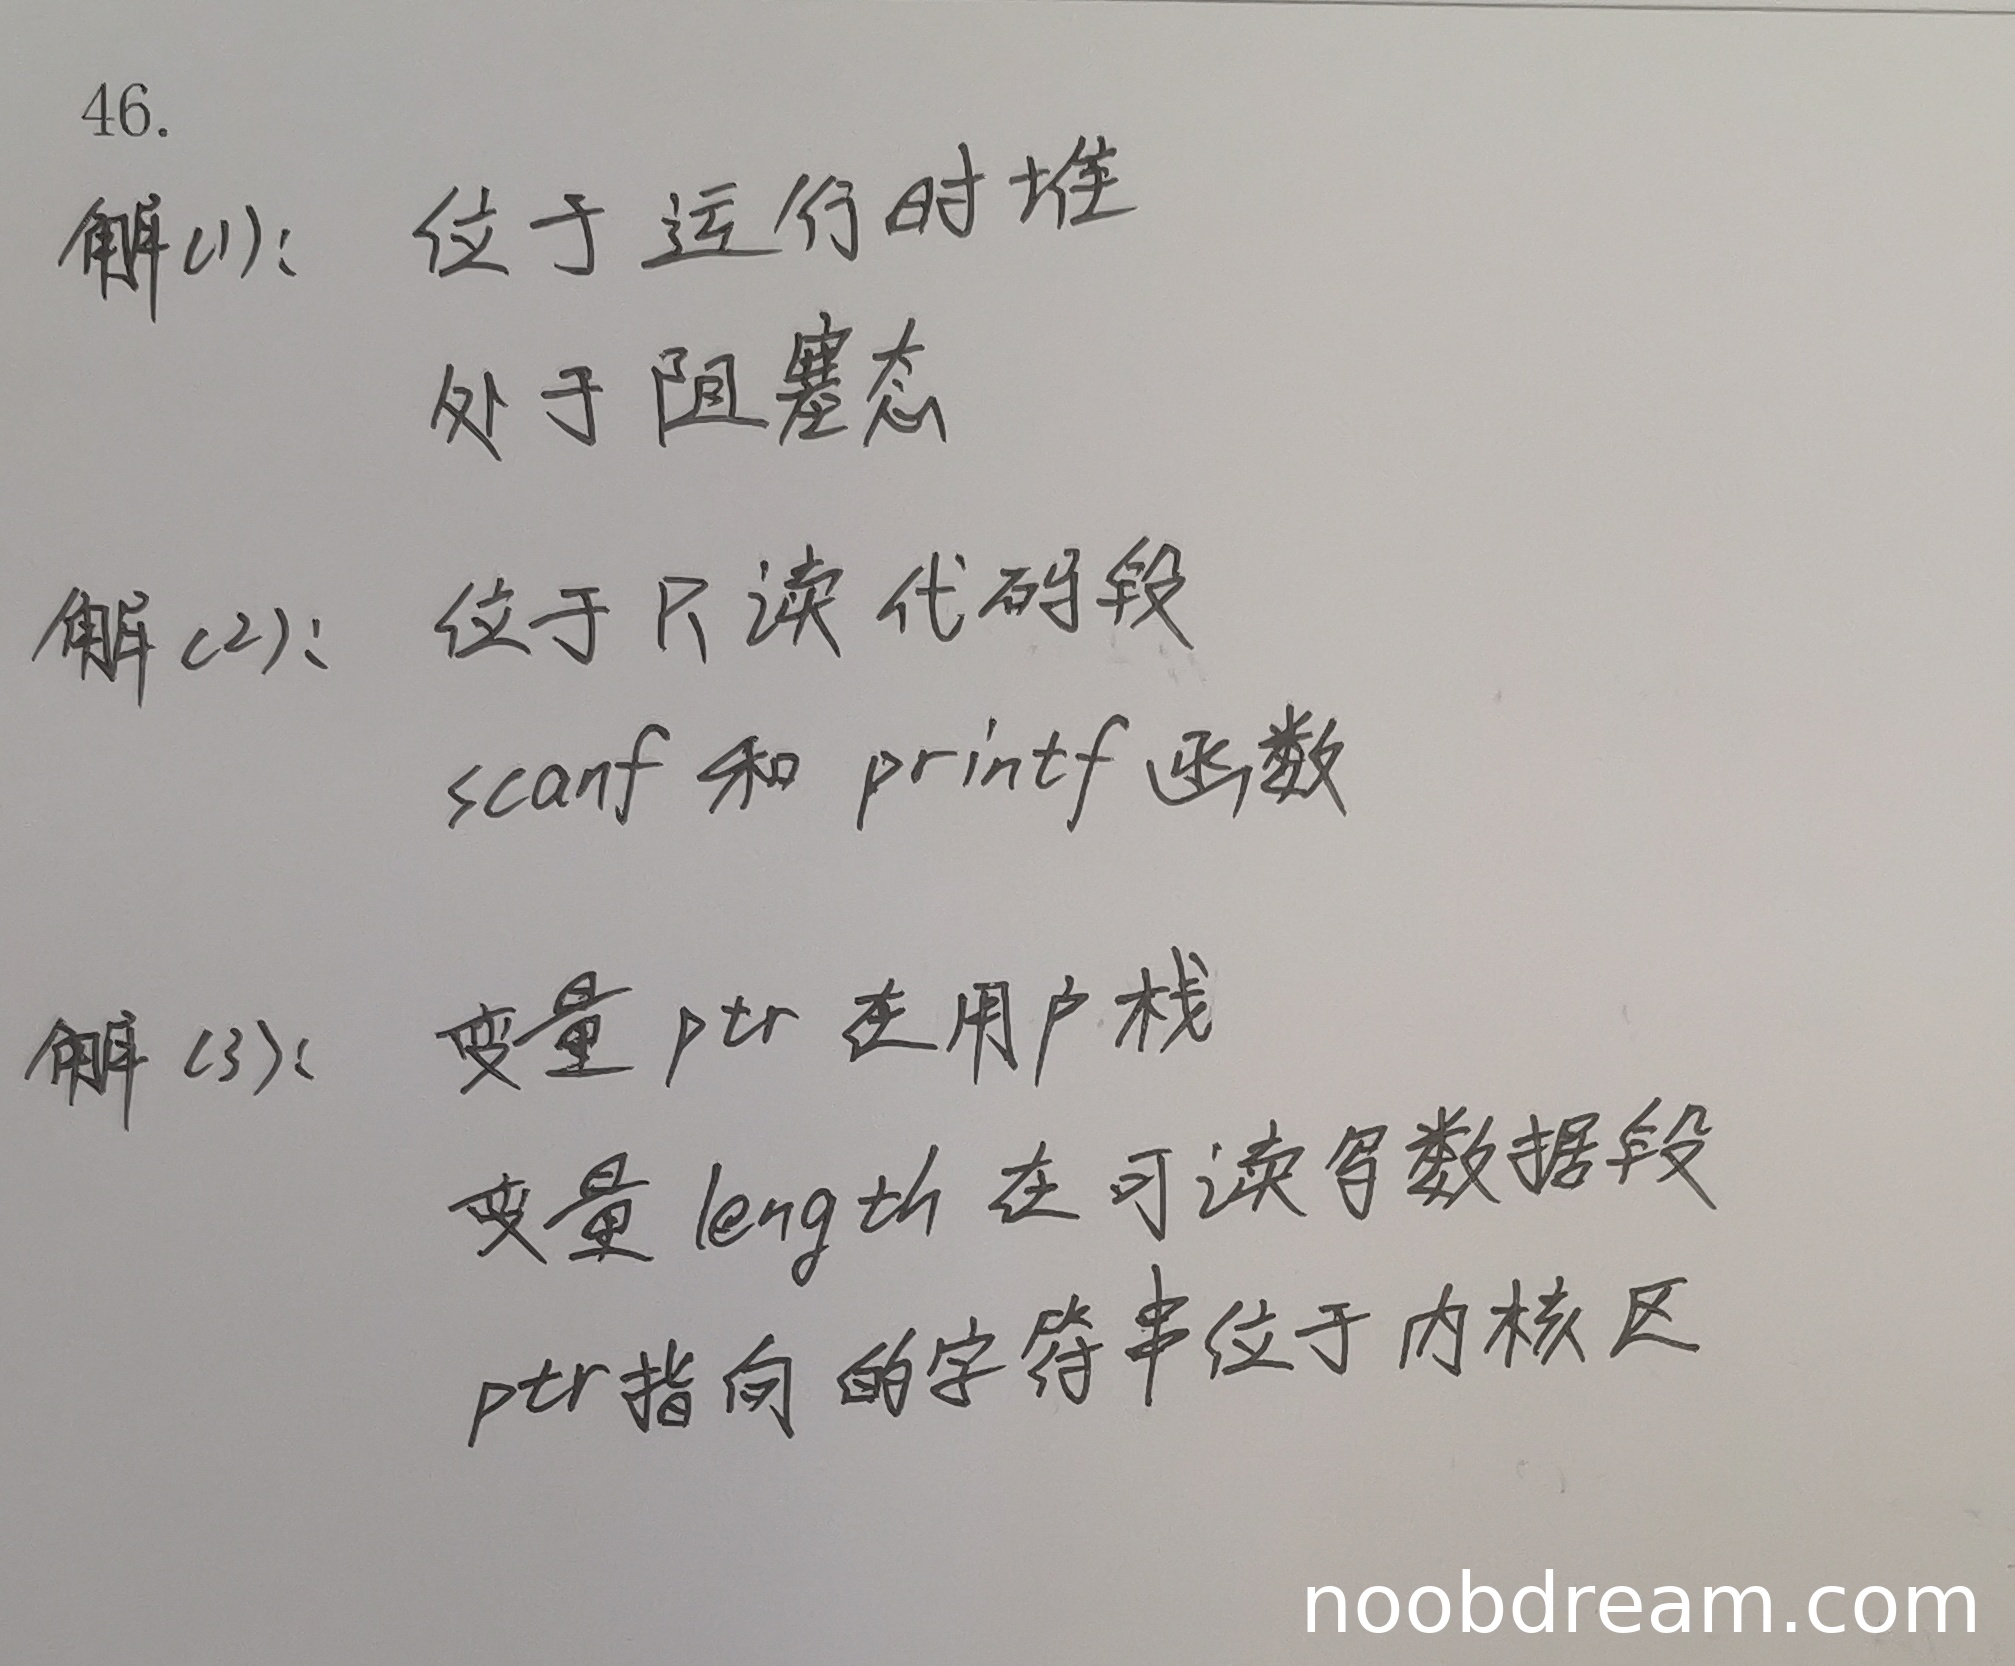 46.
解(1): 位于运行时堆
处于阻塞态
解(2): 位于只读代码段
scanf 和 printf 函数
解(3): 变量 ptr 在用户栈
变量 length 在可读写数据段
ptr指向的字符串位于内核区
noobdream.com